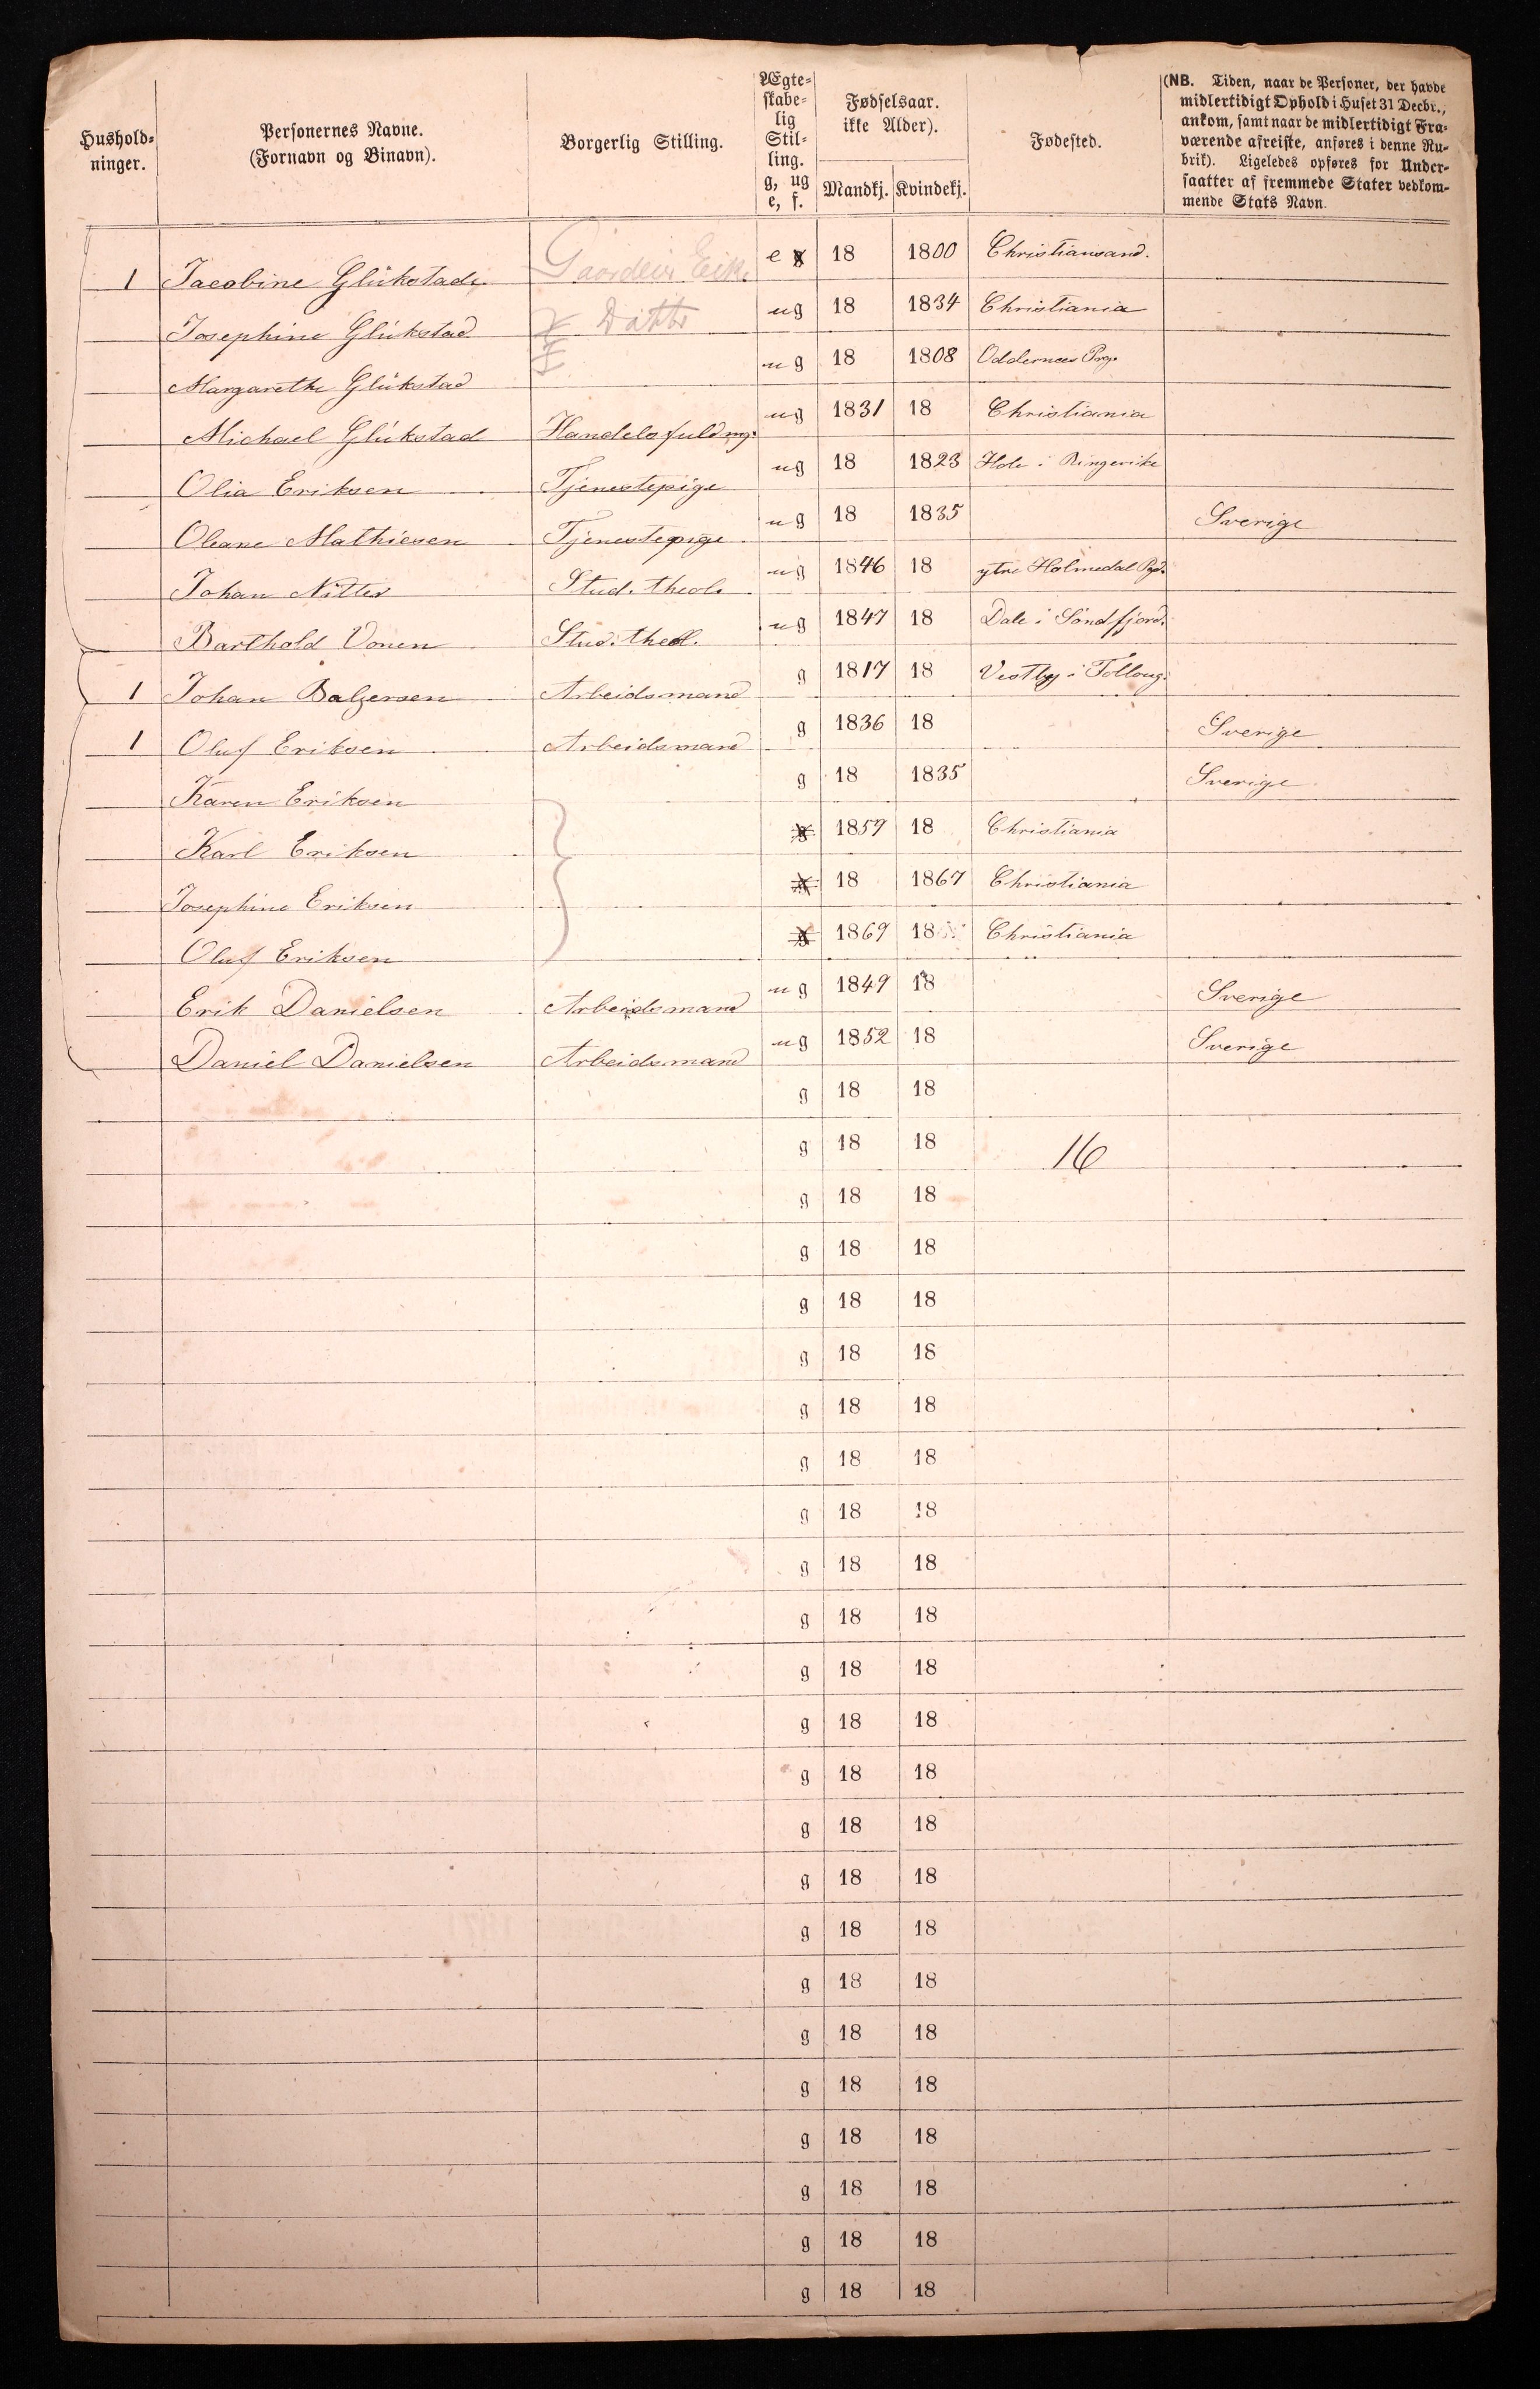 Hushold-
ninger.
Personernes Navne.
(Fornavn og Binavn).
Borgerlig Stilling.
Ægte-
skabe-
lig
Stil-
ling.
g, ug
e, f.
Fødselsaar.
ikke Alder).
Mandkj. Kvindekj.
Fødested.
(NB. Tiden, naar de Personer, der havde
midlertidigt Ophold i Huset 31 Decbr.,
ankom, samt naar de midlertidigt Fra-
værende afreiste, anføres i denne Ru-
brik). Ligeledes opføres for Under-
saatter af fremmede Stater vedkom-
mende Stats Navn.
1 Jacobine Glükstad e g 18 1800 Christiansand.
Josephine Glükstad Datter ug 18 1834 Christiania
Margarethe Glükstad ug 18 1808 Oddernæs Prg.
Michael Glükstad Handelsfuldmg. ug 1831 18 Christiania
Olia Eriksen Tjenestepige ug 18 1823 Hole i Ringerike
Oleane Mathiesen Tjenestepige ug 18 1835 Sverige
Johan Nitter Stud. theol. ug 1846 18 ytre Holmedal Pgd.
Barthold Vonen Stud. theol. ug 1847 18 Dale i Søndfjord.
1 Johan Balzersen Arbeidsmand g 1817 18 Vestby i Folloug.
1 Oluf Eriksen Arbeidsmand g 1836 18 Sverige
Karen Eriksen g 18 1835 Sverige
Karl Eriksen g 1859 18 Christiania
Josephine Eriksen g 18 1867 Christiania
Oluf Eriksen g 1869 18 Christiania
Erik Danielsen Arbeidsmand ug 1849 18 Sverige
Daniel Danielsen Arbeidsmand ug 1852 18 Sverige
g 18 18
g 18 18 16
g 18 18
g 18 18
g 18 18
g 18 18
g 18 18
g 18 18
g 18 18
g 18 18
g 18 18
g 18 18
g 18 18
g 18 18
g 18 18
g 18 18
g 18 18
g 18 18
g 18 18
g 18 18
g 18 18
g 18 18
g 18 18
g 18 18